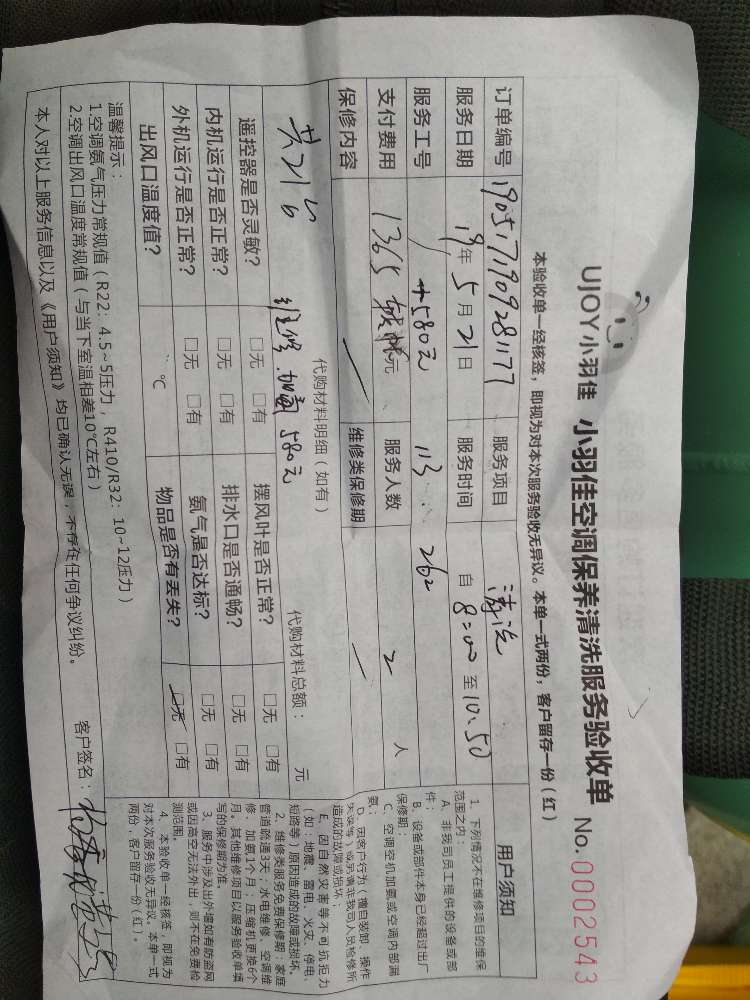 UJOY小羽佳 小羽佳空调保养清洗服务验收单 No.0002543
本验收单一经核签，即视为对本次服务验收无异议。本单一式两份，客户留存一份（红）
订单编号 1905171909281177 服务项目 清洗
服务日期 19年5月21日 服务时间 自8:00至10:50
服务工号 113 262
支付费用 1365 元 +580元 服务人数 2 人
保修内容 维修类保修期
代购材料明细（如有） 代购材料总额： 元
共21台
维修.加氟 580元
遥控器是否灵敏？ □无 □有 摆风叶是否正常？ □无 □有
内机运行是否正常？ □无 □有 排水口是否通畅？ □无 □有
外机运行是否正常？ □无 □有 氨气是否达标？ □无 □有
出风口温度值？ ℃ 物品是否有丢失？ □无 □有
温馨提示：
1.空调氨气压力常规值（R22：4.5~5压力，R410/R32：10~12压力）
2.空调出风口温度常规值（与当下室温相差10℃左右）
本人对以上服务信息以及《用户须知》均已确认无误，不存在任何争议纠纷。
客户签名：
用户须知
1、下列情况不在维修项目的维保
范围之内：
A、非我司员工提供的设备或部
件；
B、设备或部件本身已经超过出厂
保修期；
C、空调空机加氨或空调内部漏
氨；
D、因客户行为（擅自装卸、操作
失误等）或另请非我司人员检修所
造成的故障或损坏；
E、因自然灾害等不可抗拒力
（如：地震、雷电、火灾、停电、
短路等）原因造成的故障或损坏。
2、维修类服务免费保修期：家庭
管道疏通3天；水电维修、空调维
修、加氨1个月；压缩机更换6个
月。其他维修项目以服务验收单填
写的保修期为准。
3、服务中涉及出外墙如有防盗网
或因高空无法外出，则不在免费检
测范围。
4、本验收单一经核签，即视为
对本次服务验收无异议。本单一式
两份，客户留存一份（红）。